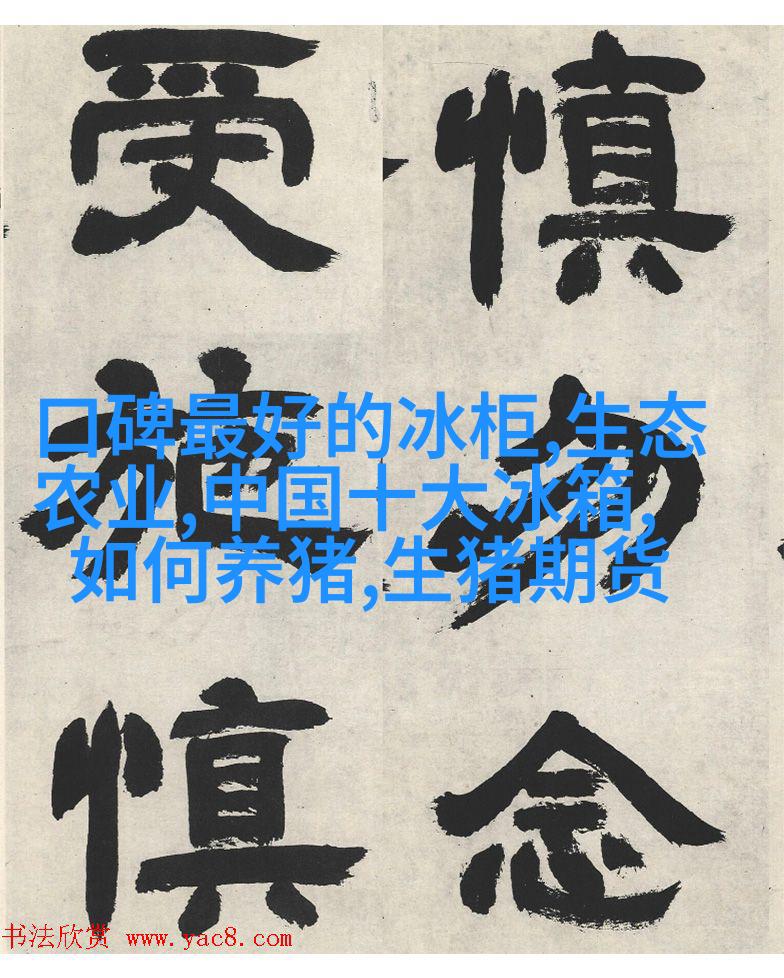 慎勿念
受施慎
口碑最好的冰柜,生态
农业,中国十大冰箱,
如何养猪,生猪期货
书法欣赏 www.yac8.com